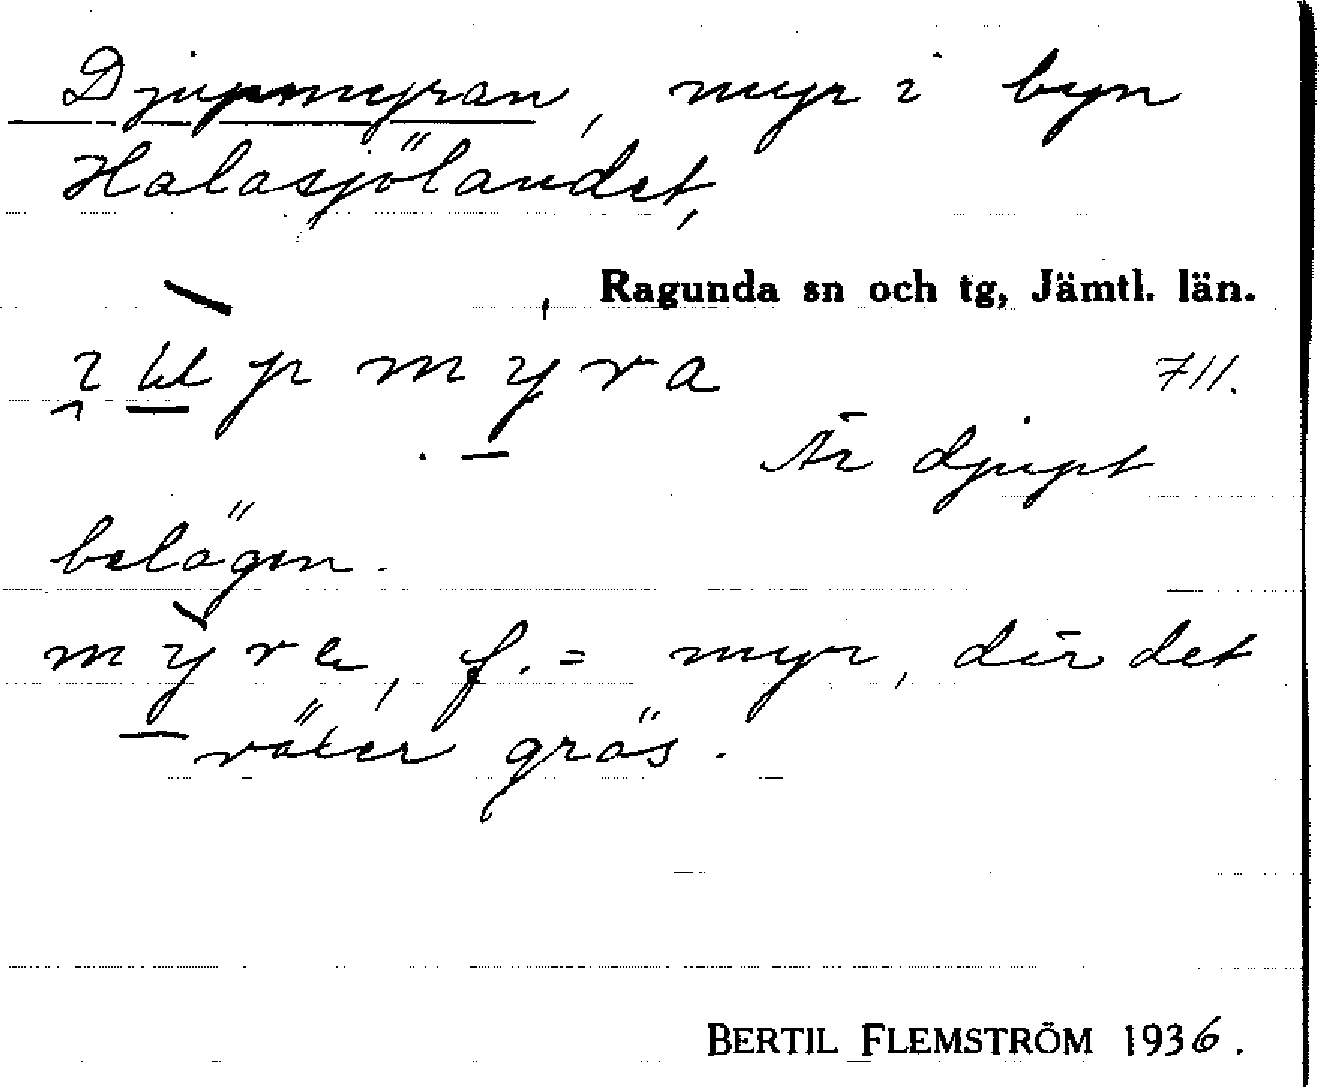 Djupmyran, myr i byn
Halasjölandet,
Ragunda sn och tg, Jämtl. län.
p m y r a 711.
Är djupt
belägen.
m y r a, f. = myr, där det
växer gräs.
BERTIL FLEMSTRÖM 1936.